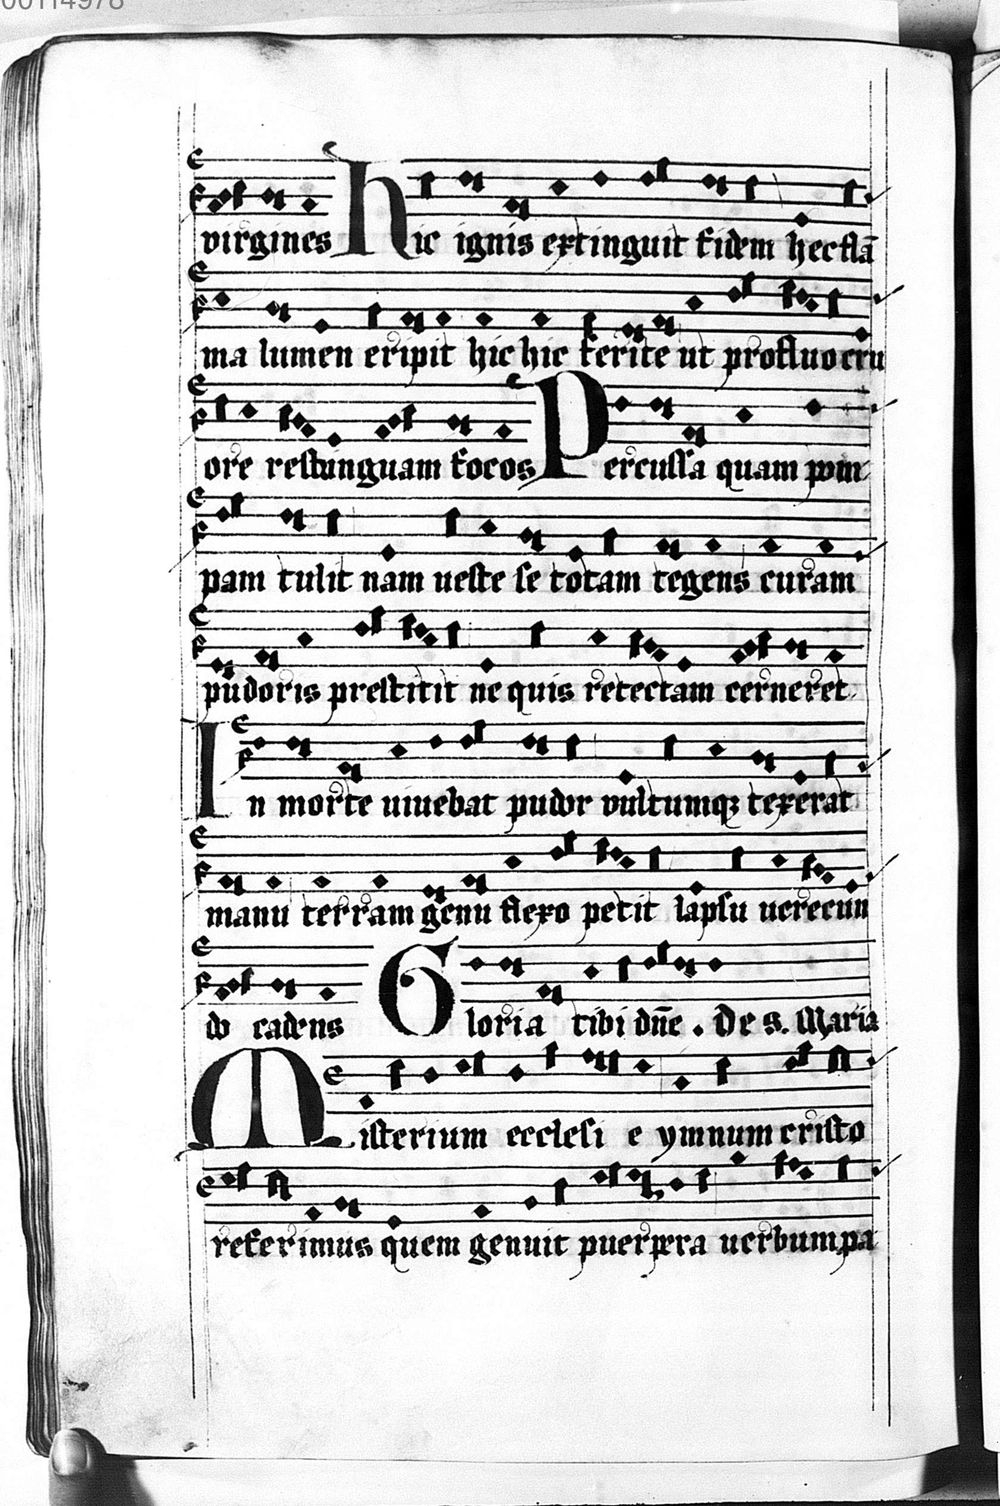 00114978
virgines Hic ignis extinguit fidem hec flā
ma lumen eripit hic hic ferite ut profluo cru
ore restinguam focos Percussa quam pom
pam tulit nam ueste se totam tegens curam
pudoris prestitit ne quis retectam cerneret
In morte uiuebat pudor vultumqꝫ texerat
manu terram genu flexo petit lapsu uerecun
do cadens Gloria tibi dn̄e . De s. Maria
Misterium ecclesi e ymnum cristo
referimus quem genuit puerpera uerbum pa